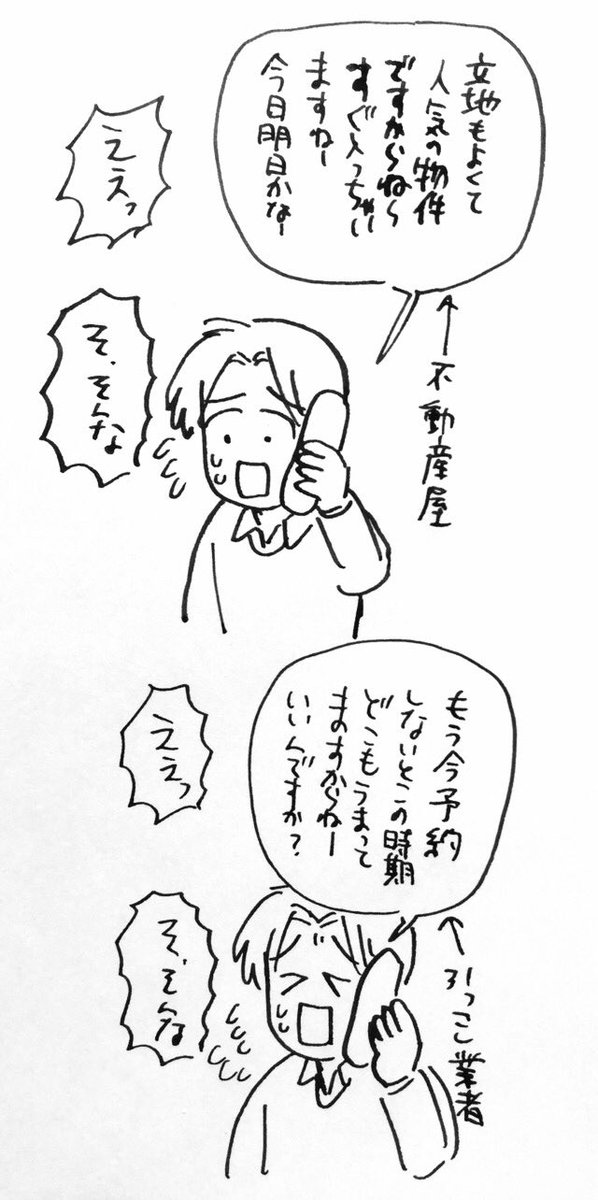 立地もよくて
人気の物件
ですからねー
すぐ入っちゃい
ますねー
今日明日かなー
ええっ
そ、そんな
←不動産屋
もう今予約
しないとこの時期
どこもうまって
ますからねー
いいんですか?
ええっ
そ、そんな
←引っこし業者